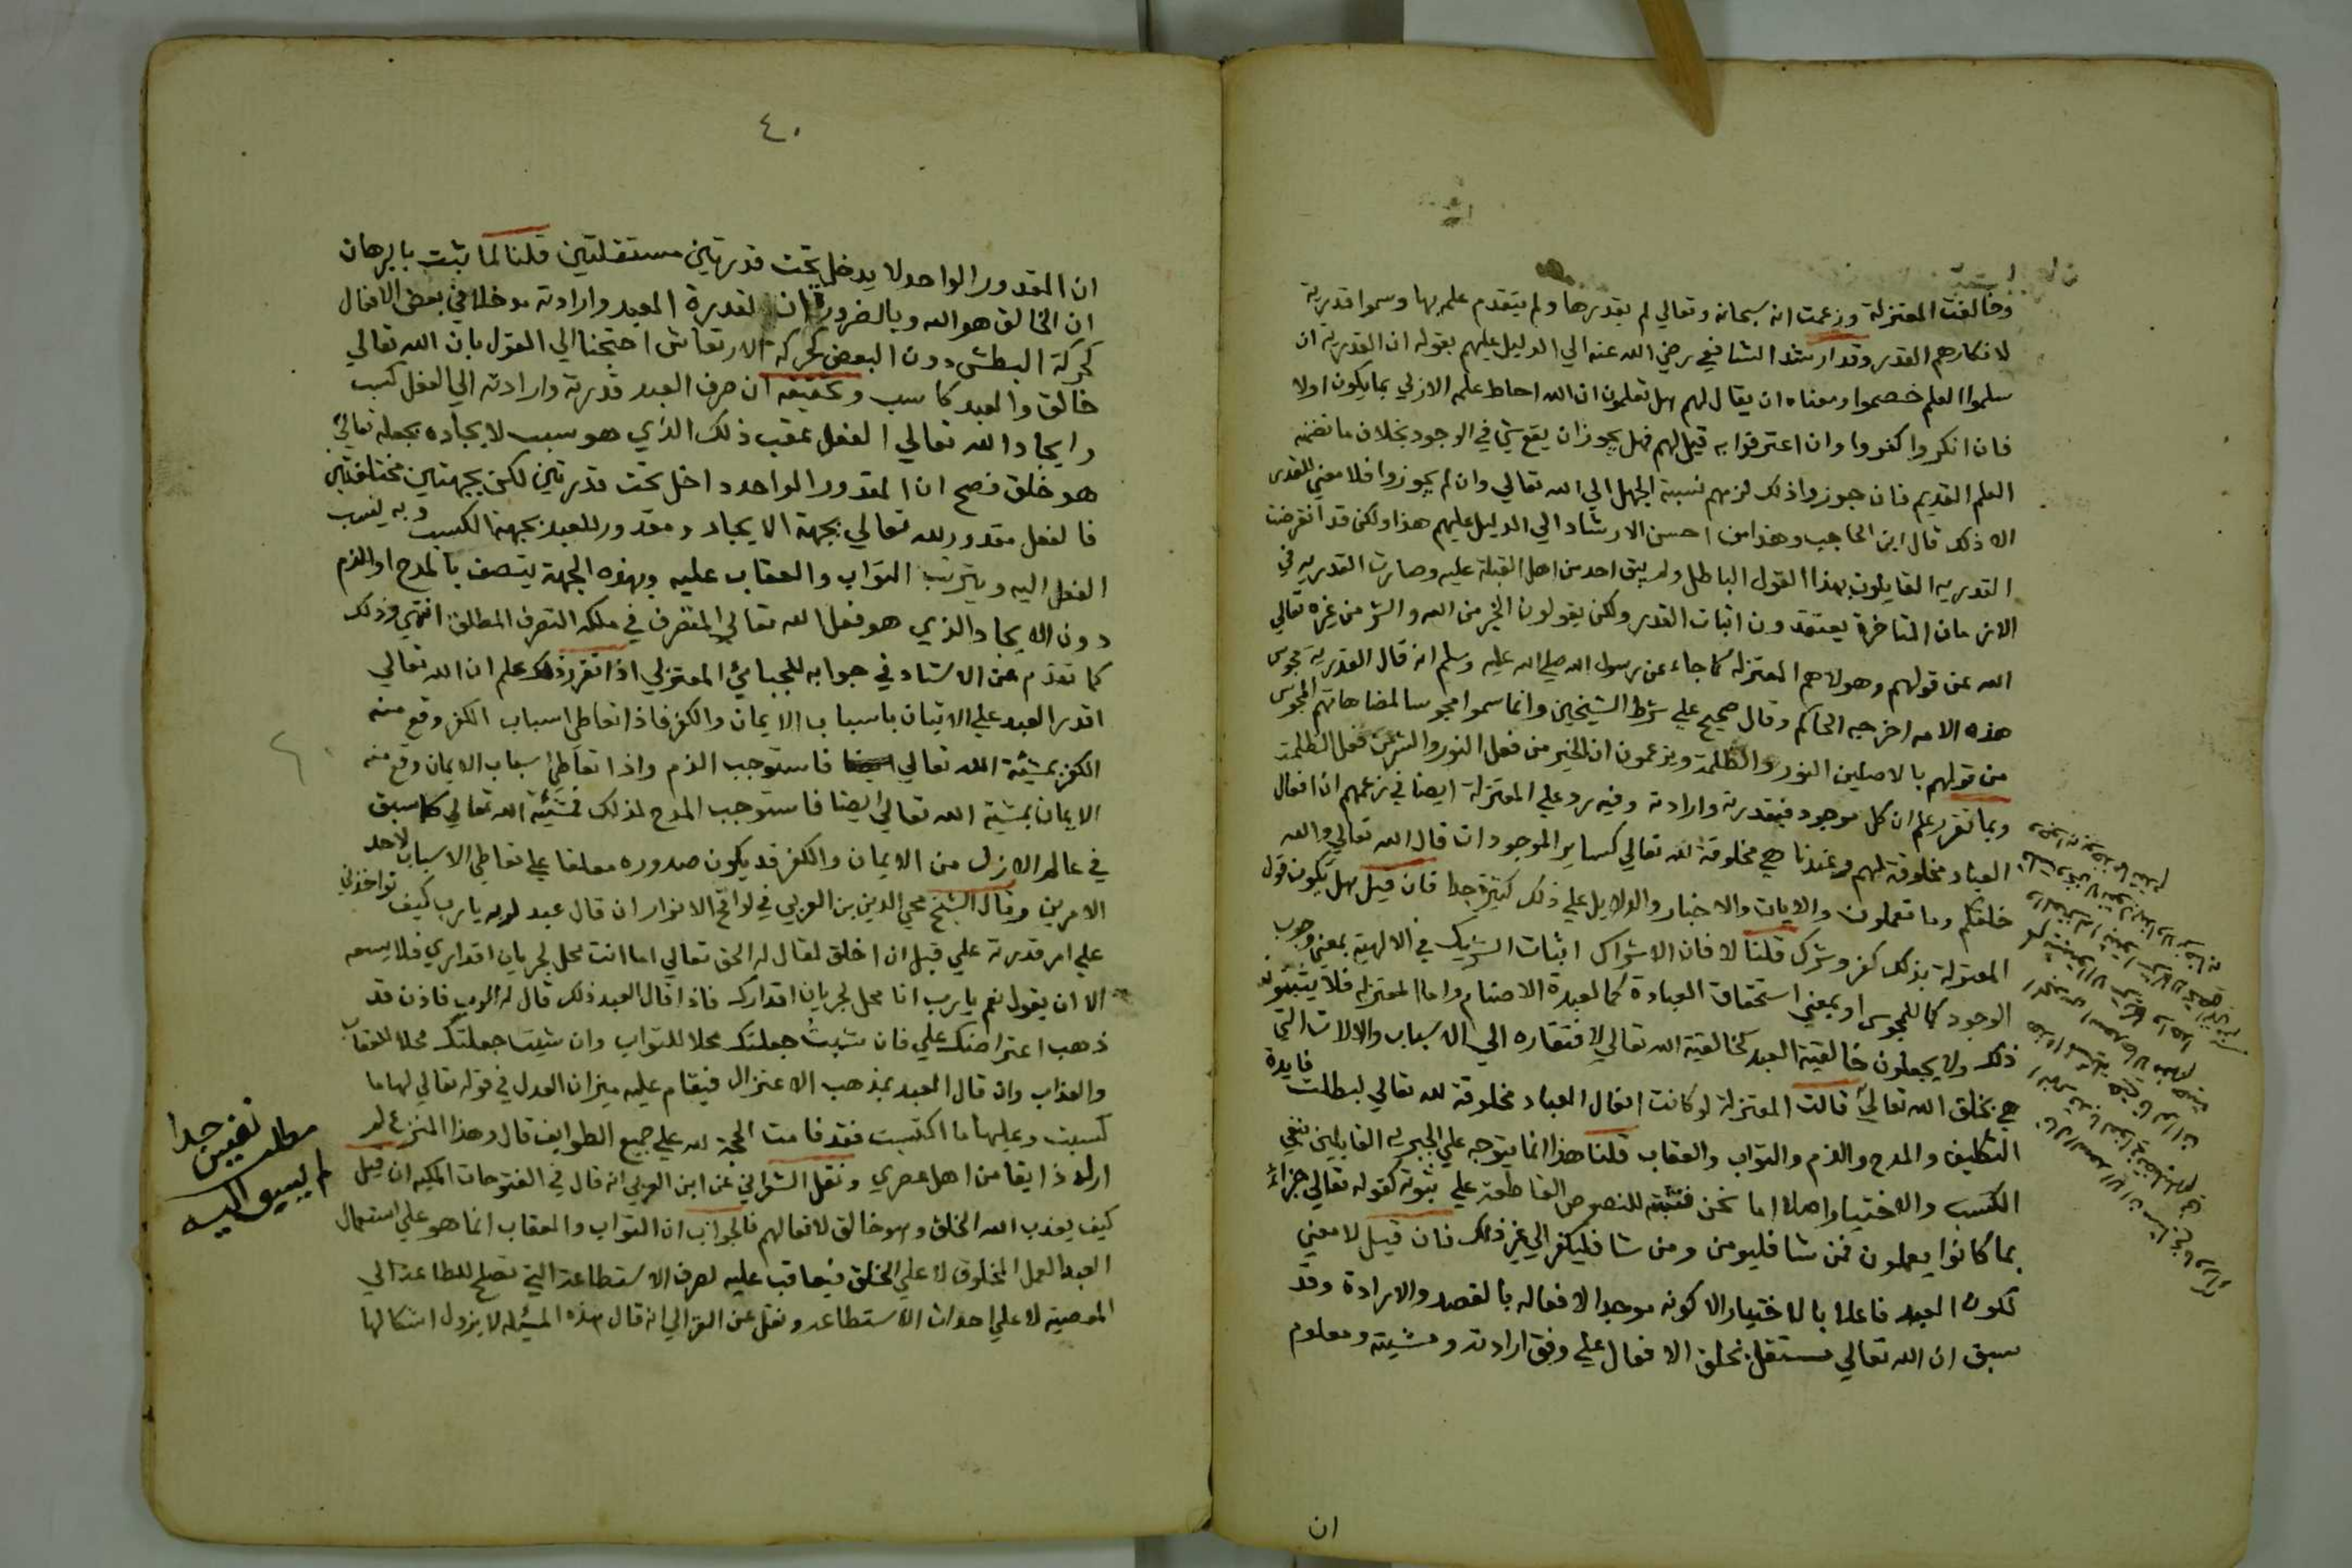 وخالفت المعتزلة وزعمت انه سبحانه وتعالي لم يقدرها ولم يتقدم علمه بها وسموا قدرية
لانكارهم القدر وقد ارشد الشافعي رضي الله عنه الي الدليل عليهم بقوله ان القدرية ان
سلموا العلم خصموا ومعناه ان يقال لهم هل تعلمون ان الله احاط علمه الازلي بما يكون اولا
فان انكروا كفروا وان اعترفوا به قيل لهم فهل يجوز ان يقع شي في الوجود بخلاف ما تضمنه
العلم القديم فان جوزوا ذلك لزمهم نسبة الجهل الي الله تعالي وان لم يجوزوا فلا معني للقدر
الا ذلك قال ابن الحاجب وهذا من احسن الارشاد الي الدليل عليهم هذا ولكن قد انقرضت
القدريه القايلون بهذا القول الباطل ولم يبق احد من اهل القبلة عليه وصارت القدريه في
الازمان المتاخرة يعتقدون اثبات القدر ولكن يقولون الخير من الله والشر من غيره تعالي
الله عن قولهم وهولاء هم المعتزلة كما جاء عن رسول الله صلي الله عليه وسلم انه قال القدرية مجوس
هذه الامه اخرجه الحاكم وقال صحيح علي شرط الشيخين وانما سموا مجوسا لمضاهاتهم المجوس
من قولهم بالاصلين النور والظلمة ويزعمون ان الخير من فعل النور والشر من فعل الظلمة
وبما تقرر علم ان كل موجود فبقدرته وارادته وفيه رد علي المعتزلة ايضا في زعمهم ان افعال
العباد مخلوقة لهم وعندنا هي مخلوقة لله تعالي كساير الموجودات قال الله تعالي والله
خلقكم وما تعملون والايات والاخبار والدلايل علي ذلك كثيرة جدا فان قيل هل يكون قول
المعتزلة بذلك كفر وشرك قلنا لا فان الاشراك اثبات الشريك في الالهية بمعني وجوب
الوجود كما للمجوس او بمعني استحقاق العبادة كما لعبدة الاصنام واما المعتزلة فلا يثبتون
ذلك ولا يجعلون خالقية العبد كخالقية الله تعالي لافتقاره الي الاسباب والالات التي
هي بخلق الله تعالي قالت المعتزلة لو كانت افعال العباد مخلوقة لله تعالي لبطلت فايدة
التكليف والمدح والذم والثواب والعقاب قلنا هذا انما يتوجه علي الجبرية القايلين بنفي
الكسب والاختيار اصلا اما نحن فنثبته للنصوص القاطعة علي ثبوته كقوله تعالي جزاء
بما كانوا يعملون فمن شا فليومن ومن شا فليكفر الي غير ذلك فان قيل لا معني
لكون العبد فاعلا بالاختيار الا كونه موجدا لافعاله بالقصد والارادة وقد
سبق ان الله تعالي مستقل بخلق الافعال علي وفق ارادته ومشيته ومعلوم
ان
٤٠
ان المقدور الواحد لا يدخل تحت قدرتين مستقلتين قلنا لما ثبت بالبرهان
ان الخالق هو الله وبالضرورة ان لقدرة العبد وارادته مدخلا في بعض الافعال
كحركة البطش دون البعض كحركة الارتعاش احتجنا الي القول بان الله تعالي
خالق والعبد كاسب وتحقيقه ان صرف العبد قدرته وارادته الي الفعل كسب
وايجاد الله تعالي الفعل عقب ذلك الذي هو سبب لايجاده بجعله تعالي
هو خلق فصح ان المقدور الواحد داخل تحت قدرتين لكن بجهتين مختلفتين
فالفعل مقدور لله تعالي بجهة الايجاد ومقدور للعبد بجهة الكسب وبه ينسب
الفعل اليه ويترتب الثواب والعقاب عليه وبهذه الجهة يتصف بالمدح او الذم
دون الايجاد الذي هو فعل الله تعالي المتصرف في ملكه التصرف المطلق انتهي وذلك
كما تقدم عن الاستاد في جوابه للجبائي المعتزلي اذا تقرر ذلك علم ان الله تعالي
اقدر العبد علي الاتيان باسباب الايمان والكفر فاذا تعاطي اسباب الكفر وقع منه
الكفر بمشيئة الله تعالي فاستوجب الذم واذا تعاطي اسباب الايمان وقع منه
الايمان بمشية الله تعالي ايضا فاستوجب المدح لذلك فمشيئة الله تعالي كما سبق
في عالم الازل من الايمان والكفر قد يكون صدوره معلقا علي تعاطي الاسباب لاحد
الامرين وقال الشيخ محي الدين بن العربي في لواقح الانوار ان قال عبد لربه يا رب كيف تواخذني
علي امر قدرته علي قبل ان اخلق لقال له الحق تعالي اما انت محل لجريان اقداري فلا يسعه
الا ان يقول نعم يا رب انا محل لجريان اقدارك فاذا قال العبد ذلك قال له الرب فاذن قد
ذهب اعتراضك علي فان شيت جعلتك محلا للثواب وان شيت جعلتك محلا للعقاب
والعذاب وان قال العبد بمذهب الاعتزال فيقام عليه ميزان العدل في قوله تعالي لها ما
كسبت وعليها ما اكتسبت فقد قامت الحجة لله علي جميع الطوايف قال وهذا المنزع لم
ار له ذايقا من اهل عصري ونقل الشعراني عن ابن العربي انه قال في الفتوحات المكيه ان قيل
كيف يعذب الله الخلق وهو خالق لافعالهم فالجواب ان الثواب والعقاب انما هو علي استعمال
العبد العمل المخلوق لا علي الخلق فيعاقب عليه لصرف الاستطاعة التي تصلح للطاعة الي
المعصية لا علي احداث الاستطاعه ونقل عن الغزالي انه قال هذه المسئله لا يزول اشكالها
مطلب نفيس جدا
لم يسبق اليه